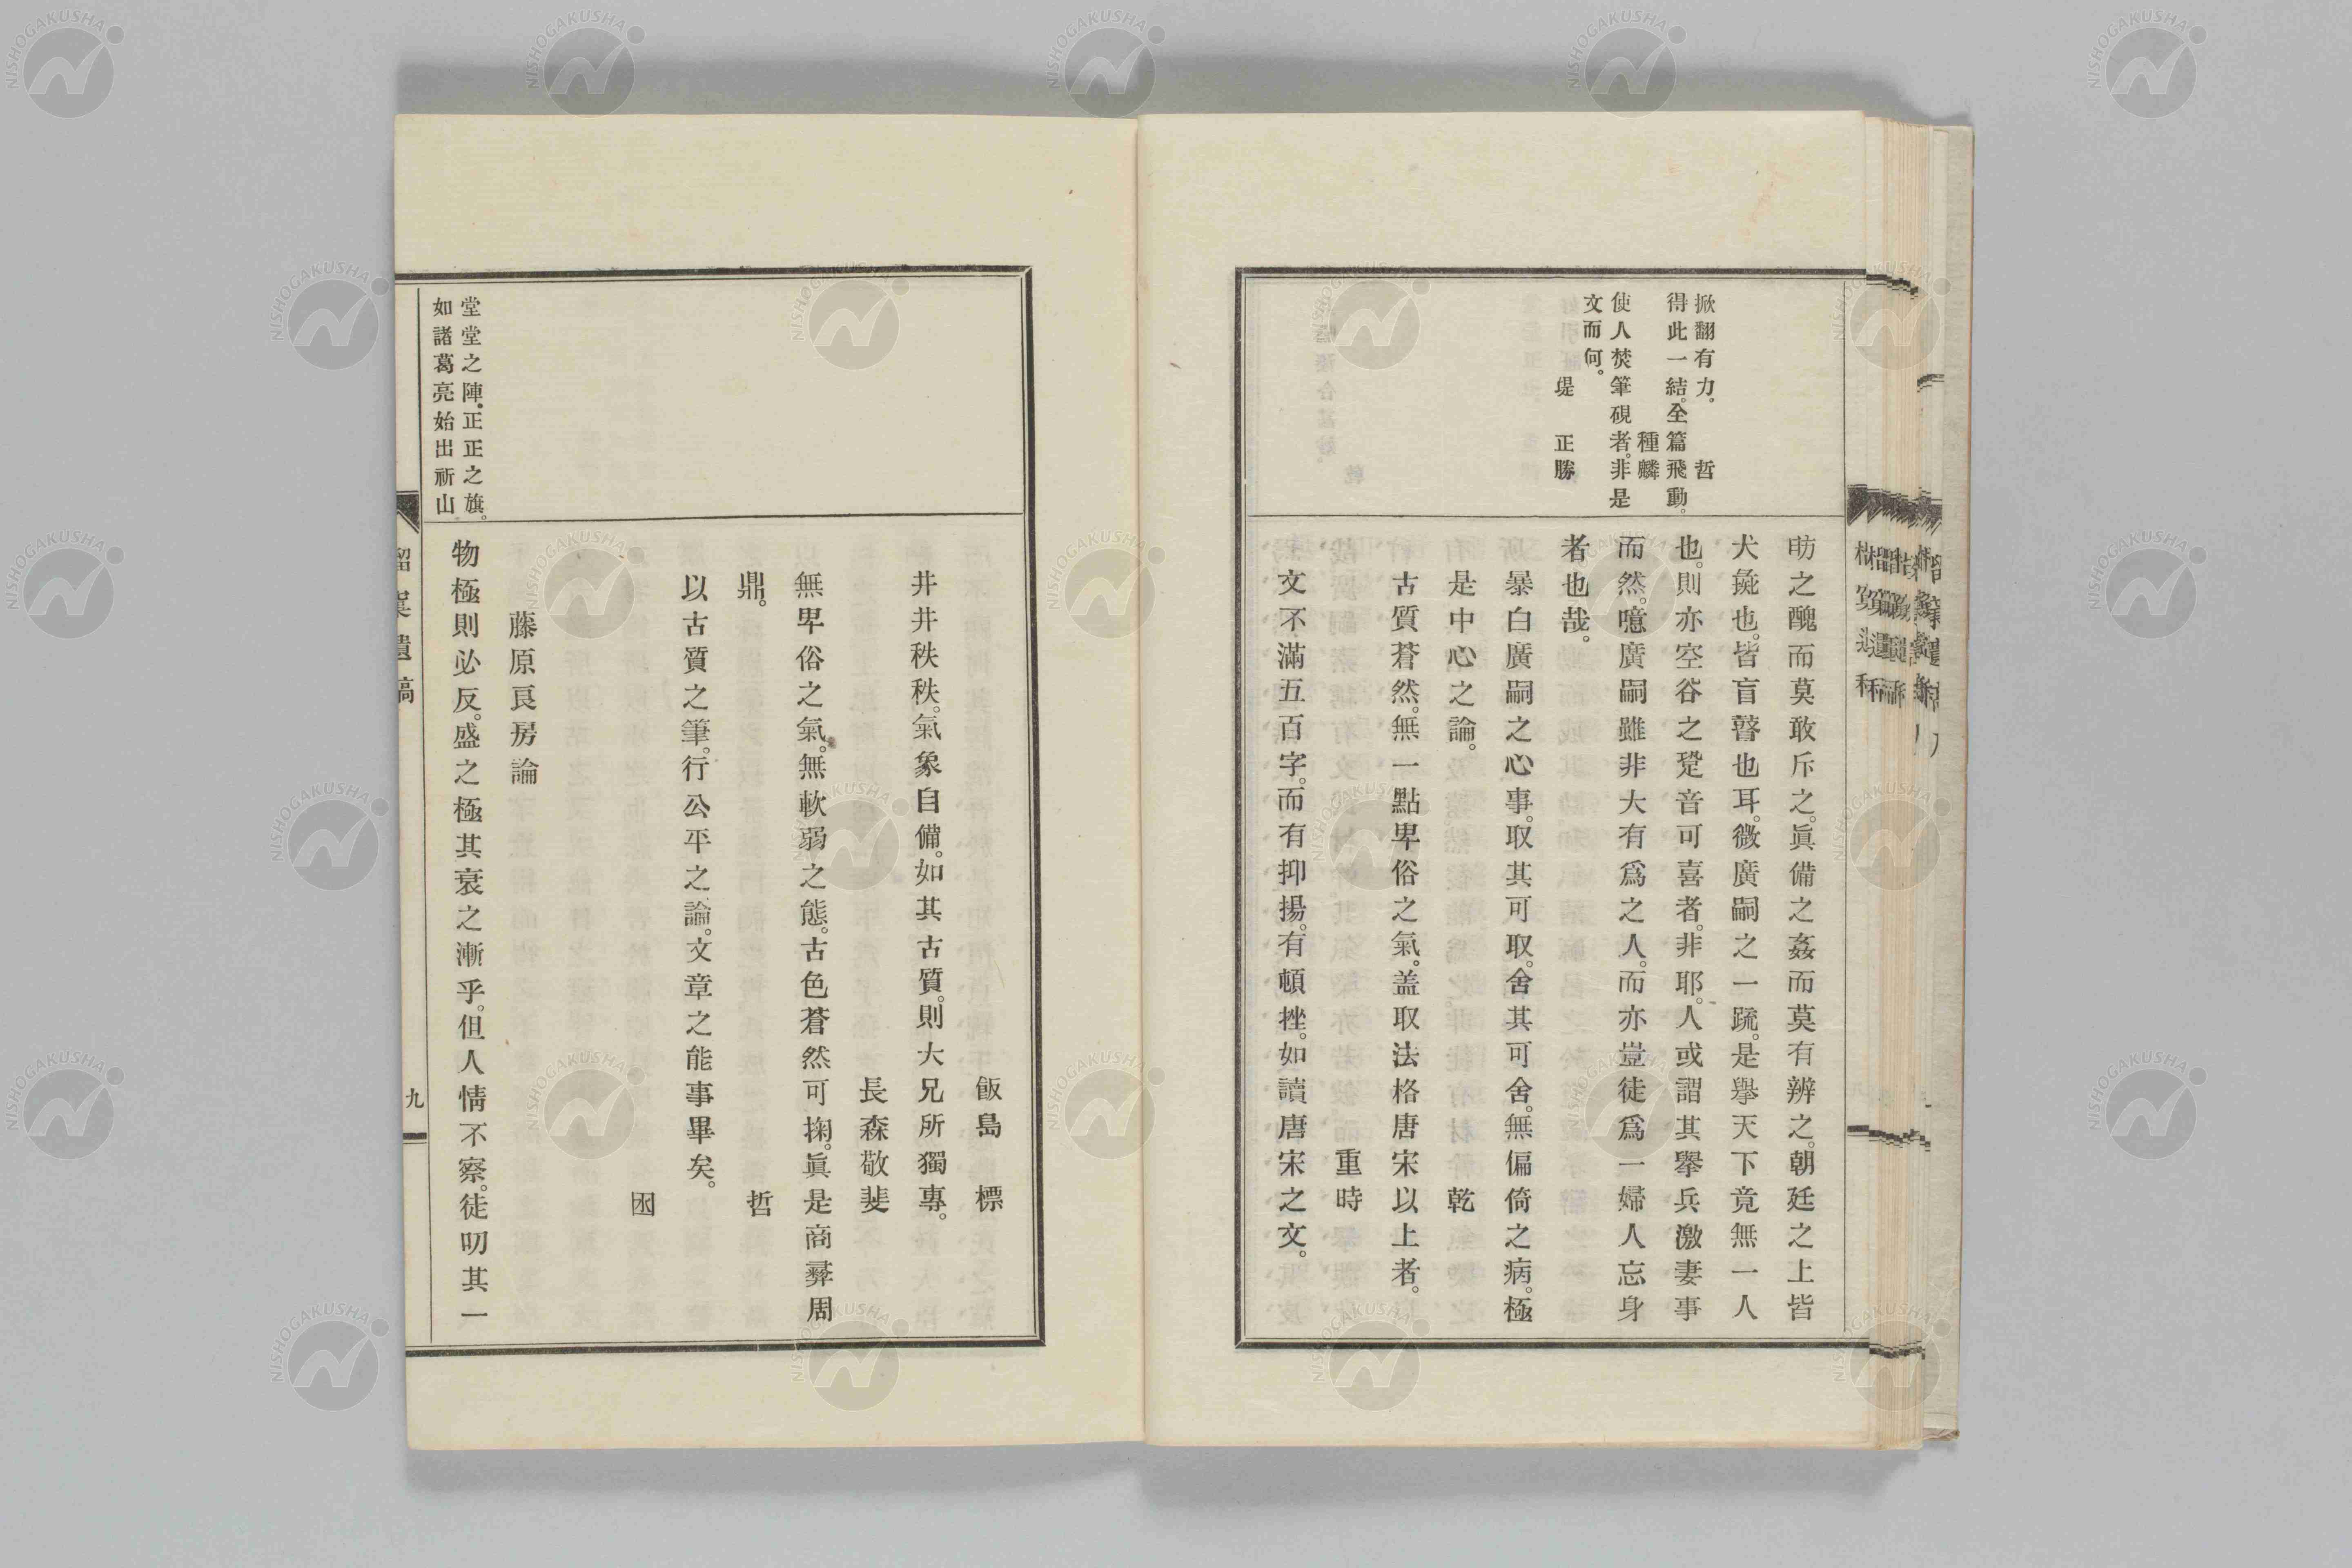 掀翻有力。哲
得此一結。全篇飛動。
種麟
使人焚筆硯者。非是
文而何。
堤正勝
昉之醜而莫敢斥之。眞備之姦而莫有辨之。朝廷之上皆
犬彘也。皆盲瞽也耳。微廣嗣之一疏。是擧天下竟無一人
也。則亦空谷之跫音可喜者。非耶。人或謂其擧兵激妻事
而然。噫廣嗣雖非大有爲之人。而亦豈徒爲一婦人忘身
者也哉。
暴白廣嗣之心事。取其可取。舍其可舍。無偏倚之病。極
是中心之論。乾
古質蒼然。無一點卑俗之氣。盖取法格唐宋以上者。
重時
文不滿五百字。而有抑揚。有頓挫。如讀唐宋之文。
飯島標
井井秩秩。氣象自備。如其古質。則大兄所獨專。
長森敬斐
無卑俗之氣。無軟弱之態。古色蒼然可掬。眞是商彝周
鼎。哲
以古質之筆。行公平之論。文章之能事畢矣。
囦
藤原良房論
堂堂之陣。正正之旗。
如諸葛亮始出祈山
物極則必反。盛之極其衰之漸乎。但人情不察。徒叨其一
九
NISHOGAKUSHA